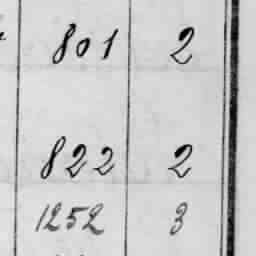 801 2
822 2
1252 3